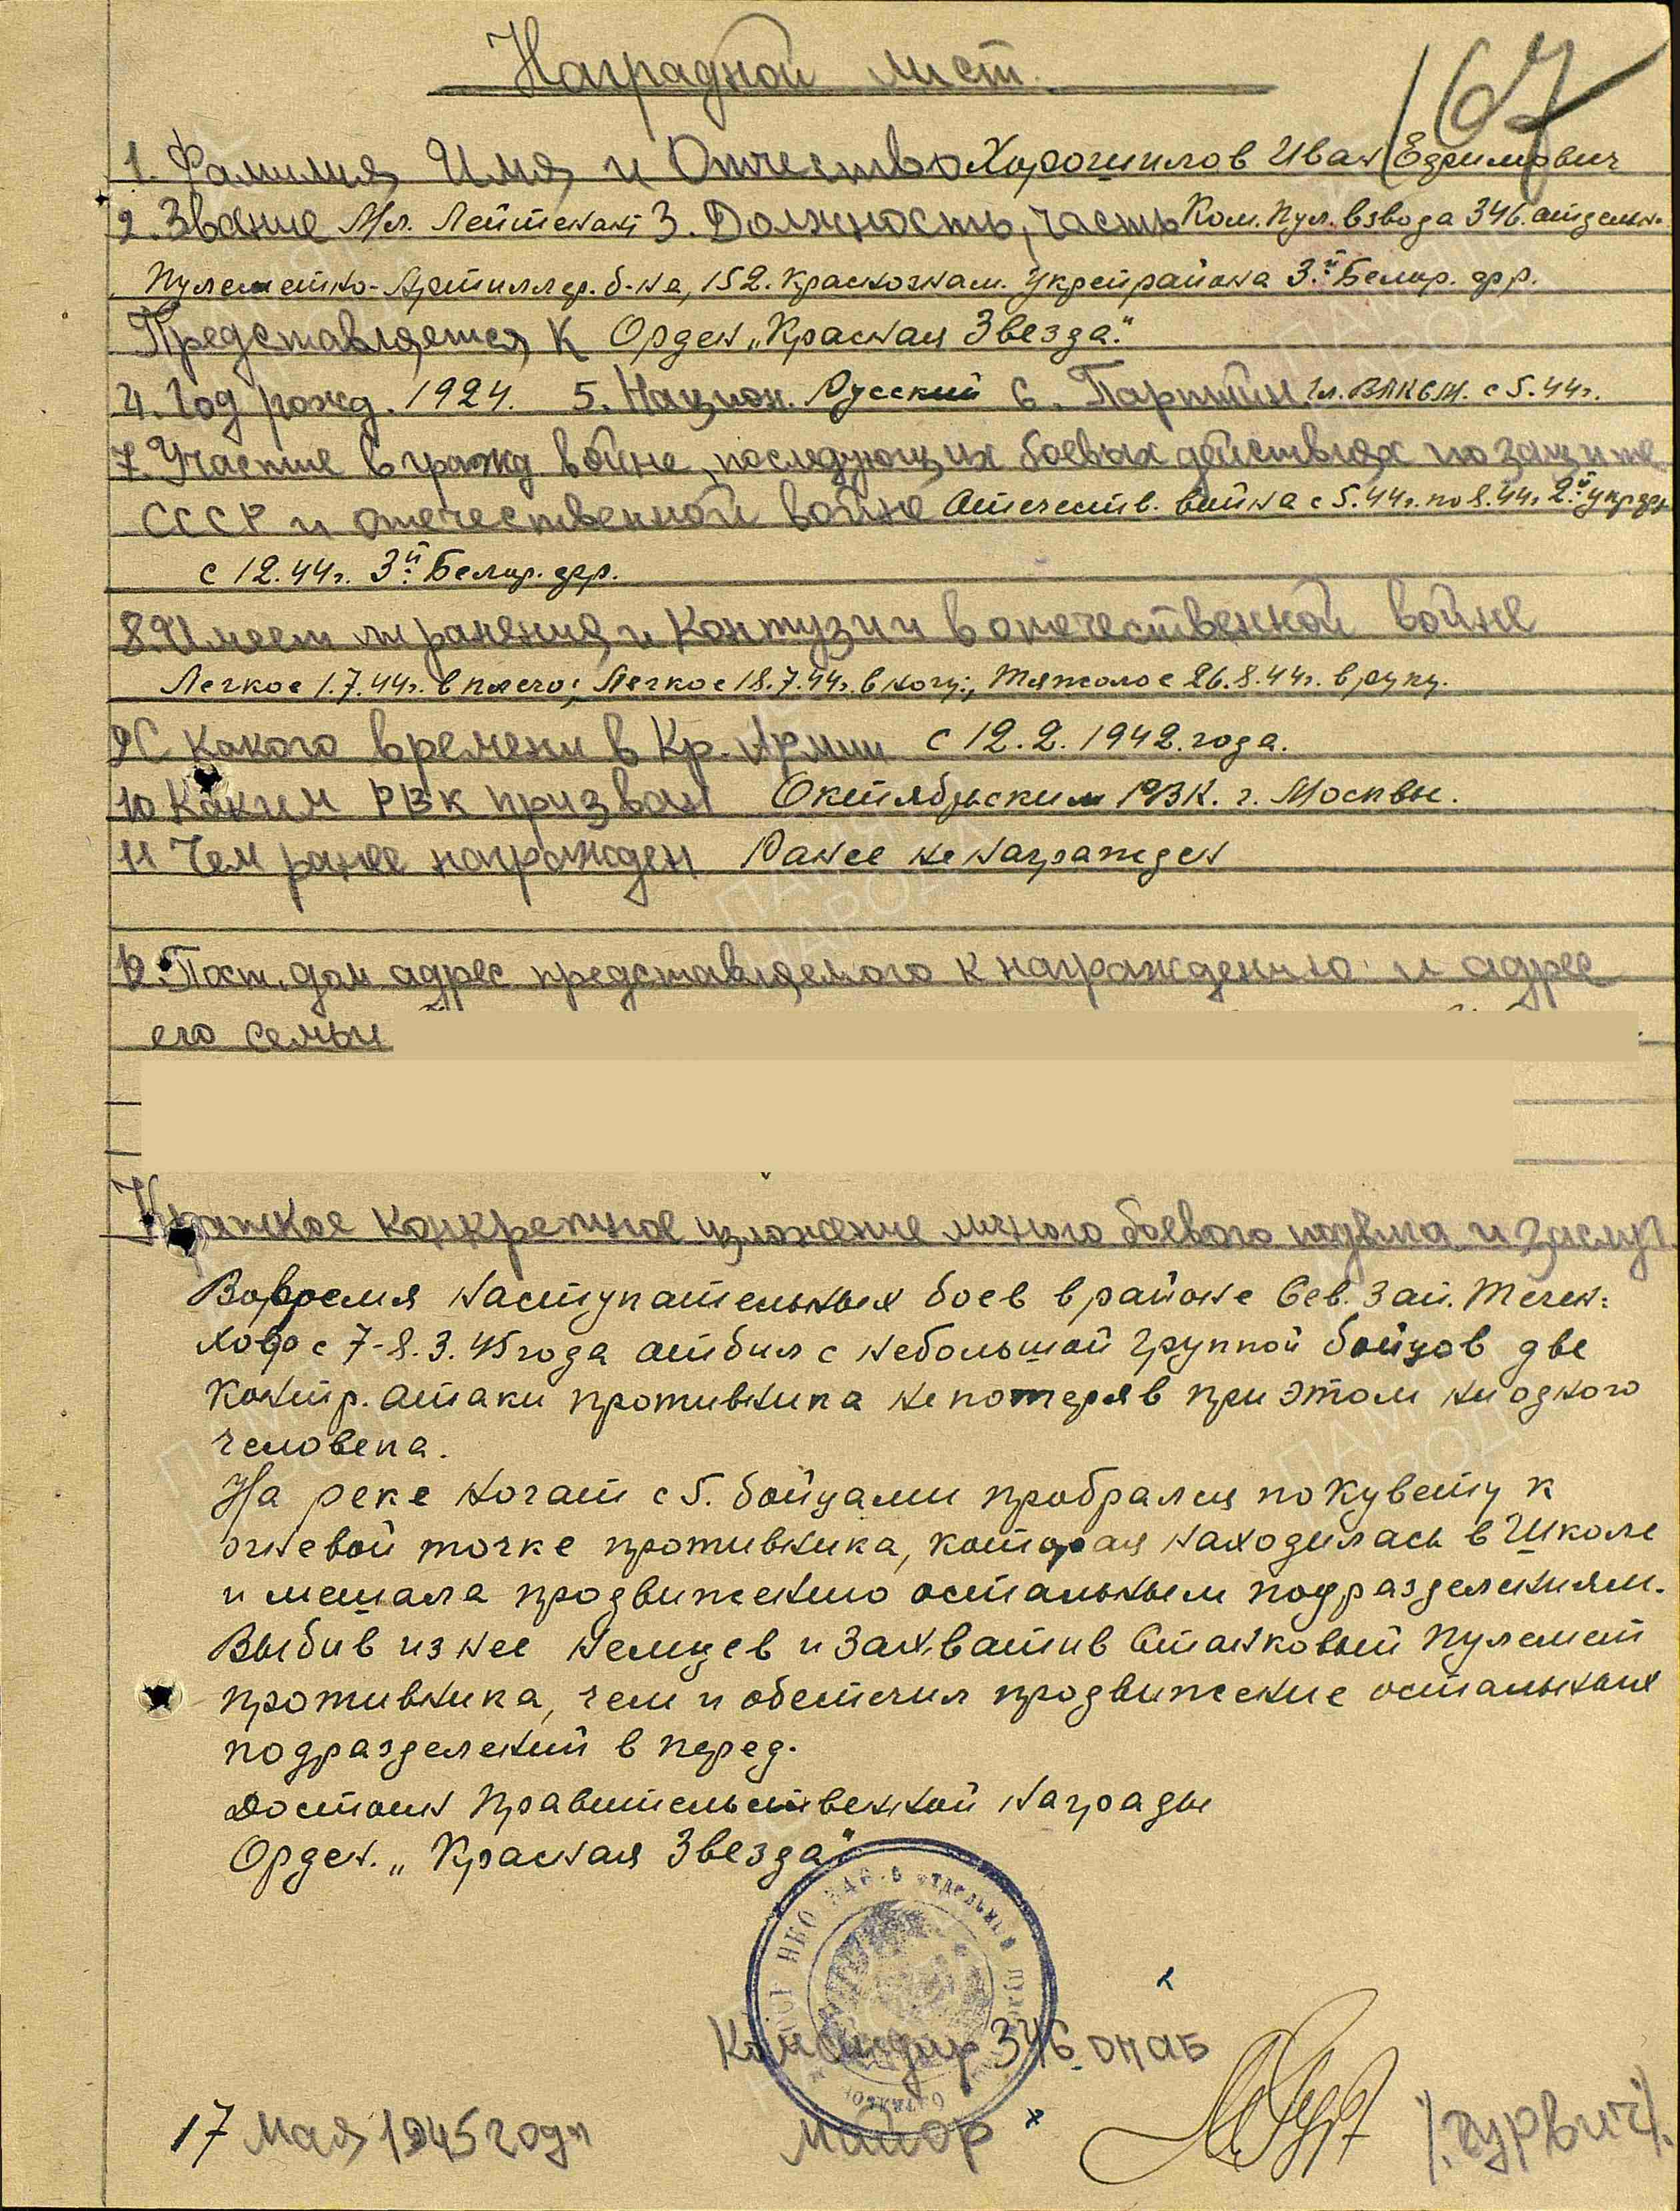 Наградной лист.
167
1. Фамилия, Имя, и Отчество Хорошилов Иван Ефимович
2. Звание Мл. Лейтенант 3. Должность, часть Ком. Пул. взвода 346. отдельн.
Пулеметно-Артиллер. б-на, 152. Краснознам. Укрепрайона 3й Белор. фр.
Представляется к Орден „Красная Звезда."
4. Год рожд. 1924. 5. Национ. Русский 6. Партийн. чл. ВЛКСМ. с 5.44г.
7. Участие в гражд войне, последующих боевых действиях по защите
СССР и отечественной войне Отечеств. война с 5.44г. по 8.44г. 2й укр фр
с 12.44г. 3й Белор. фр.
8. Имеет ли ранения и контузии в отечественной войне
Легкое 1.7.44г. в плечо; Легкое 18.7.44г. в ногу; Тяжолое 26.8.44г. в руку.
9 С какого времени в Кр. Армии с 12.2.1942.года.
10 Каким РВК призван Октябрьским РВК. г. Москвы.
11 Чем ранее награжден Ранее не награжден
12. Пост. дом адрес представляемого к награждению и адрес
его семьи
Краткое конкретное изложение личного боевого подвига и заслуг.
Вовремя наступательных боев в районе Сев. Зап. Тиген-
хоф с 7-8.3.45 года отбил с небольшой группой бойцов две
контр. атаки противника не потеряв при этом ни одного
человека.
На реке Ногат с 5. бойцами пробрался по кувету к
огневой точке противника, которая находилась в Школе
и мешала продвижению остальным подразделениям.
Выбив из нее немцев и захватив Станковый пулемет
противника, чем и обеспечил продвижение остальных
подразделений в перед.
Достоин Правительственной награды
Орден. „Красная Звезда"
НКО 346-й отдельный
Командир 346 опаб
17 Мая 1945 года майор /Гурвич/.